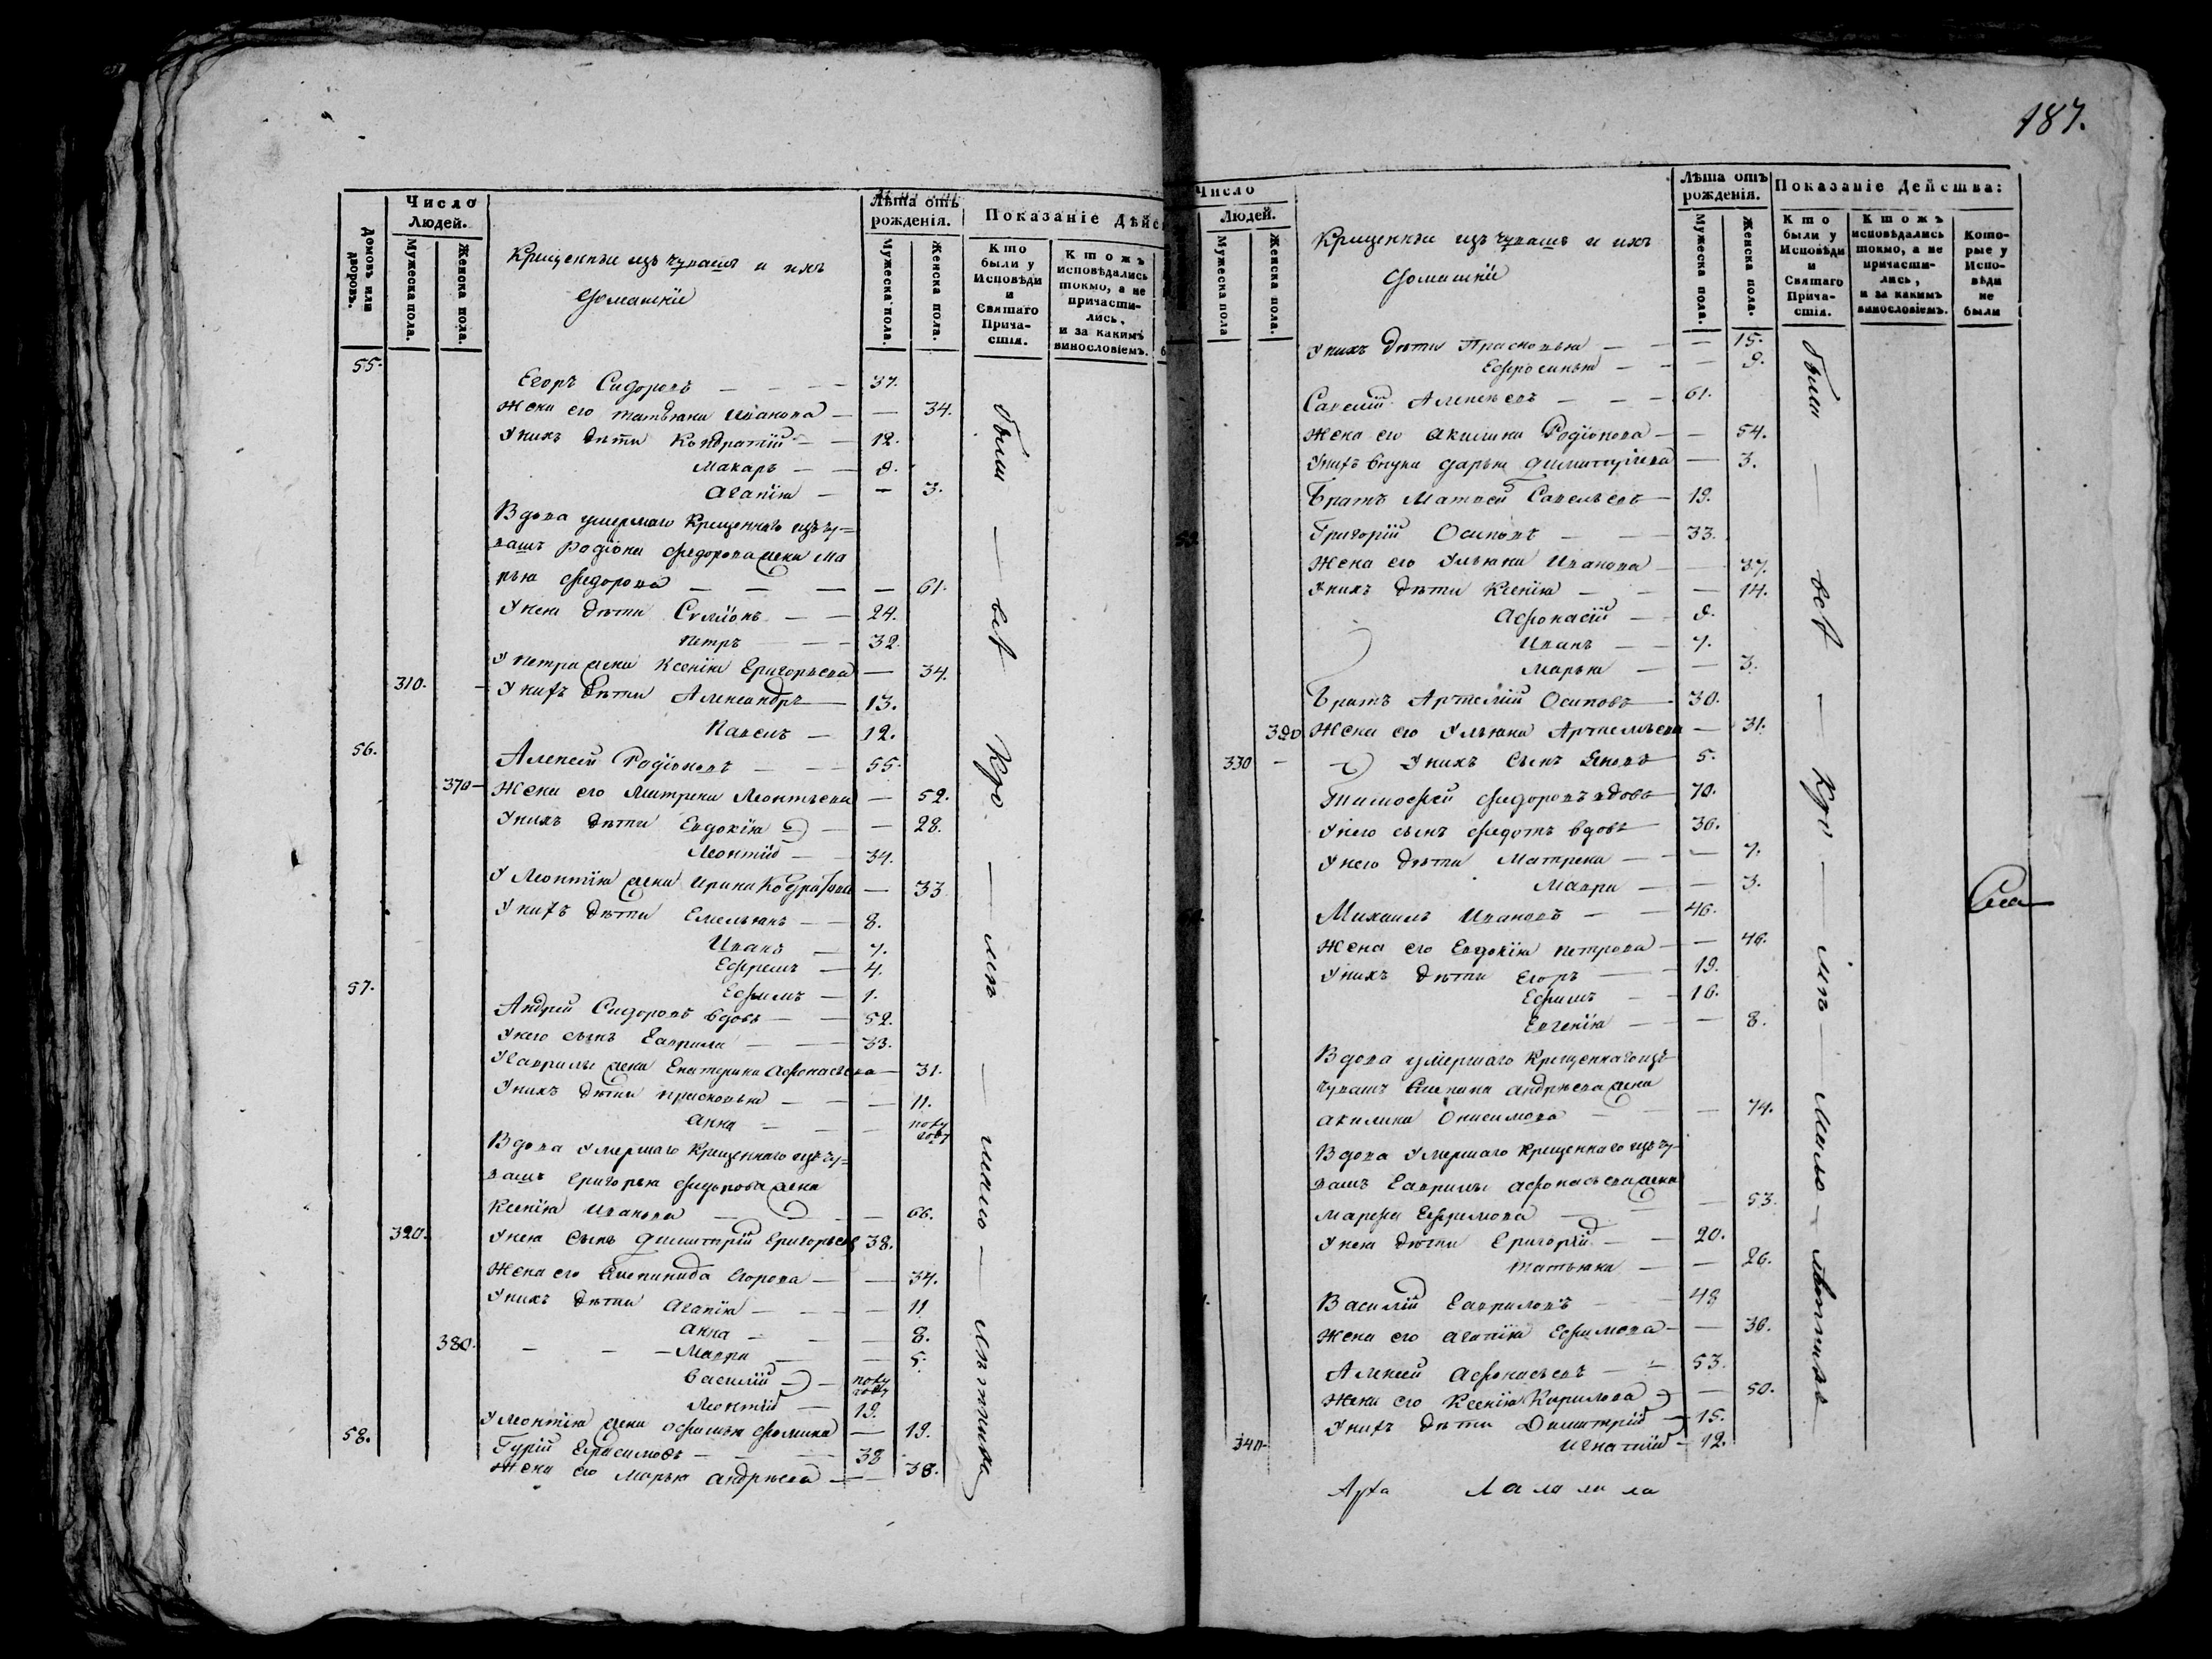 187.
Число
Людей.
Лѣта отъ
рожденія.
Показаніе Дѣйс
Домовъ или
дворовъ.
Мужеска пола.
Женска пола.
Крещенныи изъ чувашъ и ихъ
домашніи
Мужеска пола.
Женска пола.
Кто
были у
Исповѣди
и
Святаго
Прича-
стія.
Ктожъ
исповѣдались
токмо, а не
причасти-
лись,
и за какимъ
винословіемъ.
55.
Егоръ Сидоровъ — 37.
Жена его Татьяна Иванова — 34.
У нихъ дѣти Кондратій — 12.
Макаръ — 8.
Агапія — 3.
Вдова умершаго Крещеннаго изъ чу=
вашъ Родіона Федорова жена Ма
рья Федорова — 61.
У нея дѣти Симіонъ — 24.
Петръ — 32.
У Петра жена Ксенія Григорьева — 34.
310. У нихъ дѣти Александръ — 13.
Павелъ — 12.
56.
Алексѣй Родіоновъ — 55.
370 Жена его Матрена Леонтьева — 52.
У нихъ дѣти Евдокія — 28.
Леонтій — 34.
У Леонтія жена Ирина — 33
У нихъ дѣти Емельянъ — 8.
Иванъ — 7.
Ефремъ — 4.
57.
Ефимъ — 1.
Андрей Сидоровъ вдовъ — 52.
У него сынъ Гаврила — 33.
У Гаврилы жена Екатерина Афонасьева — 31.
У нихъ дѣти Прасковья — 11.
Анна — полу
году
Вдова умершаго Крещеннаго изъ чу=
вашъ Григорья Федорова жена
Ксенія Иванова — 66.
320. У нея сынъ Димитрій Григорьевъ 38.
Жена его Степанида Егорова — 34.
У нихъ дѣти Агапія — 11
Анна — 8.
380. Мавра — 5.
Василій — полу
году
Леонтій — 19.
У Леонтія жена Фомина — 19.
58.
Гурій Герасимовъ — 38
Жена его Марья Андрѣева — 38.
были — всѣ
Число
Людей.
Лѣта отъ
рожденія.
Показаніе Действа:
Мужеска пола
Женска пола.
Крещенныи изъ чувашъ и ихъ
домашніи
Мужеска пола.
Женска пола.
Кто
были у
Исповѣди
и
Святаго
Прича-
стія.
Ктожъ
исповѣдались
токмо, а не
причасти-
лись,
и за какимъ
винословіемъ.
Кото-
рые у
Испо-
вѣди
не
были
У нихъ дѣти Прасковья — 15.
Ефросинья — 9.
Савелій Алексѣевъ — 61.
Жена его Акилина Родіонова — 54.
У нихъ внука Дарья Димитріева — 3.
Братъ Матвей Савельевъ — 19.
Григорій Осиповъ — 33.
Жена его Ульяна Иванова — 37.
У нихъ дѣти Ксенія — 14.
Афонасій — 8.
Иванъ — 7.
Марья — 3.
Братъ Артемій Осиповъ — 30.
390 Жена его Ульяна Артемьева — 31.
330 — У нихъ сынъ Яковъ 5.
Тимофей Федоровъ вдовъ — 70.
У него сынъ Федотъ вдовъ — 36.
У него дѣти Матрена — 7.
Мавра — 3.
Михаилъ Ивановъ — 46.
Жена его Евдокія Петрова — 46.
У нихъ дѣти Егоръ — 19.
Ефимъ — 16.
Евгенія — 8.
Вдова умершаго Крещеннаго изъ
чувашъ Степана Андрѣева жена
Акилина Онисимова — 74.
Вдова умершаго Крещеннаго изъ чу-
вашъ Гаврилы Афонасьева жена
Марфа Ефремова — 53.
У нея дѣти Григорій — 20.
Татьяна — 26.
Василій Гавриловъ — 48
Жена его Агапія Ефимова — 36.
Алексей Афонасьевъ — 53.
Жена его Ксенія Кирилова — 50.
У нихъ дѣти Димитрій — 15.
340 Игнатій — 12.
были — всѣ